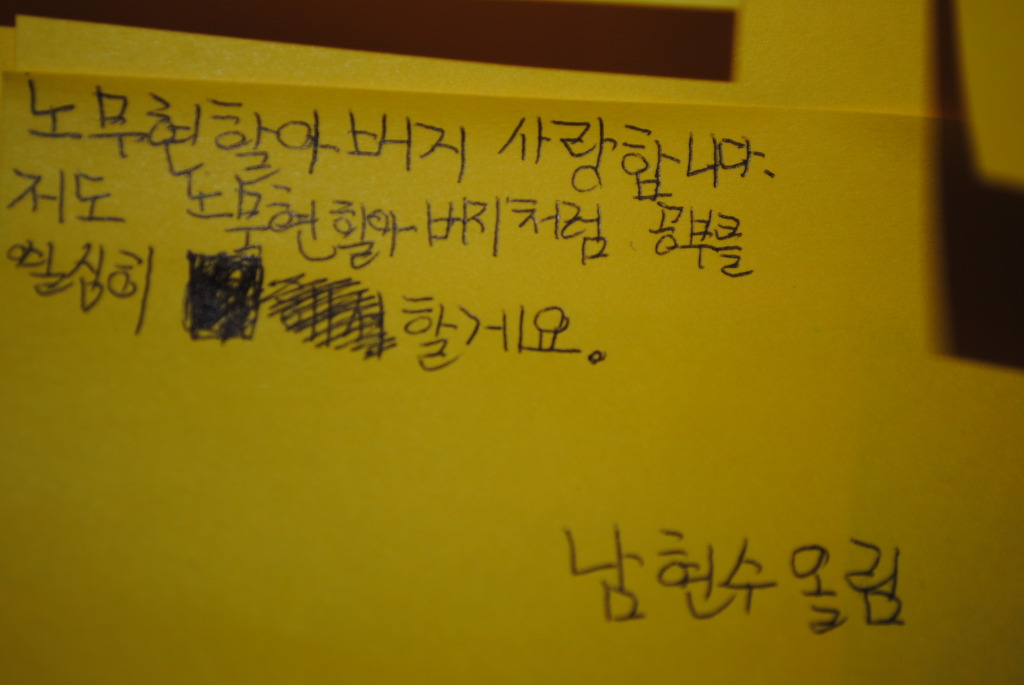 노무현할아버지 사랑합니다.
저도 노무현할아버지처럼 공부를
열심히 할게요.
남현수올림